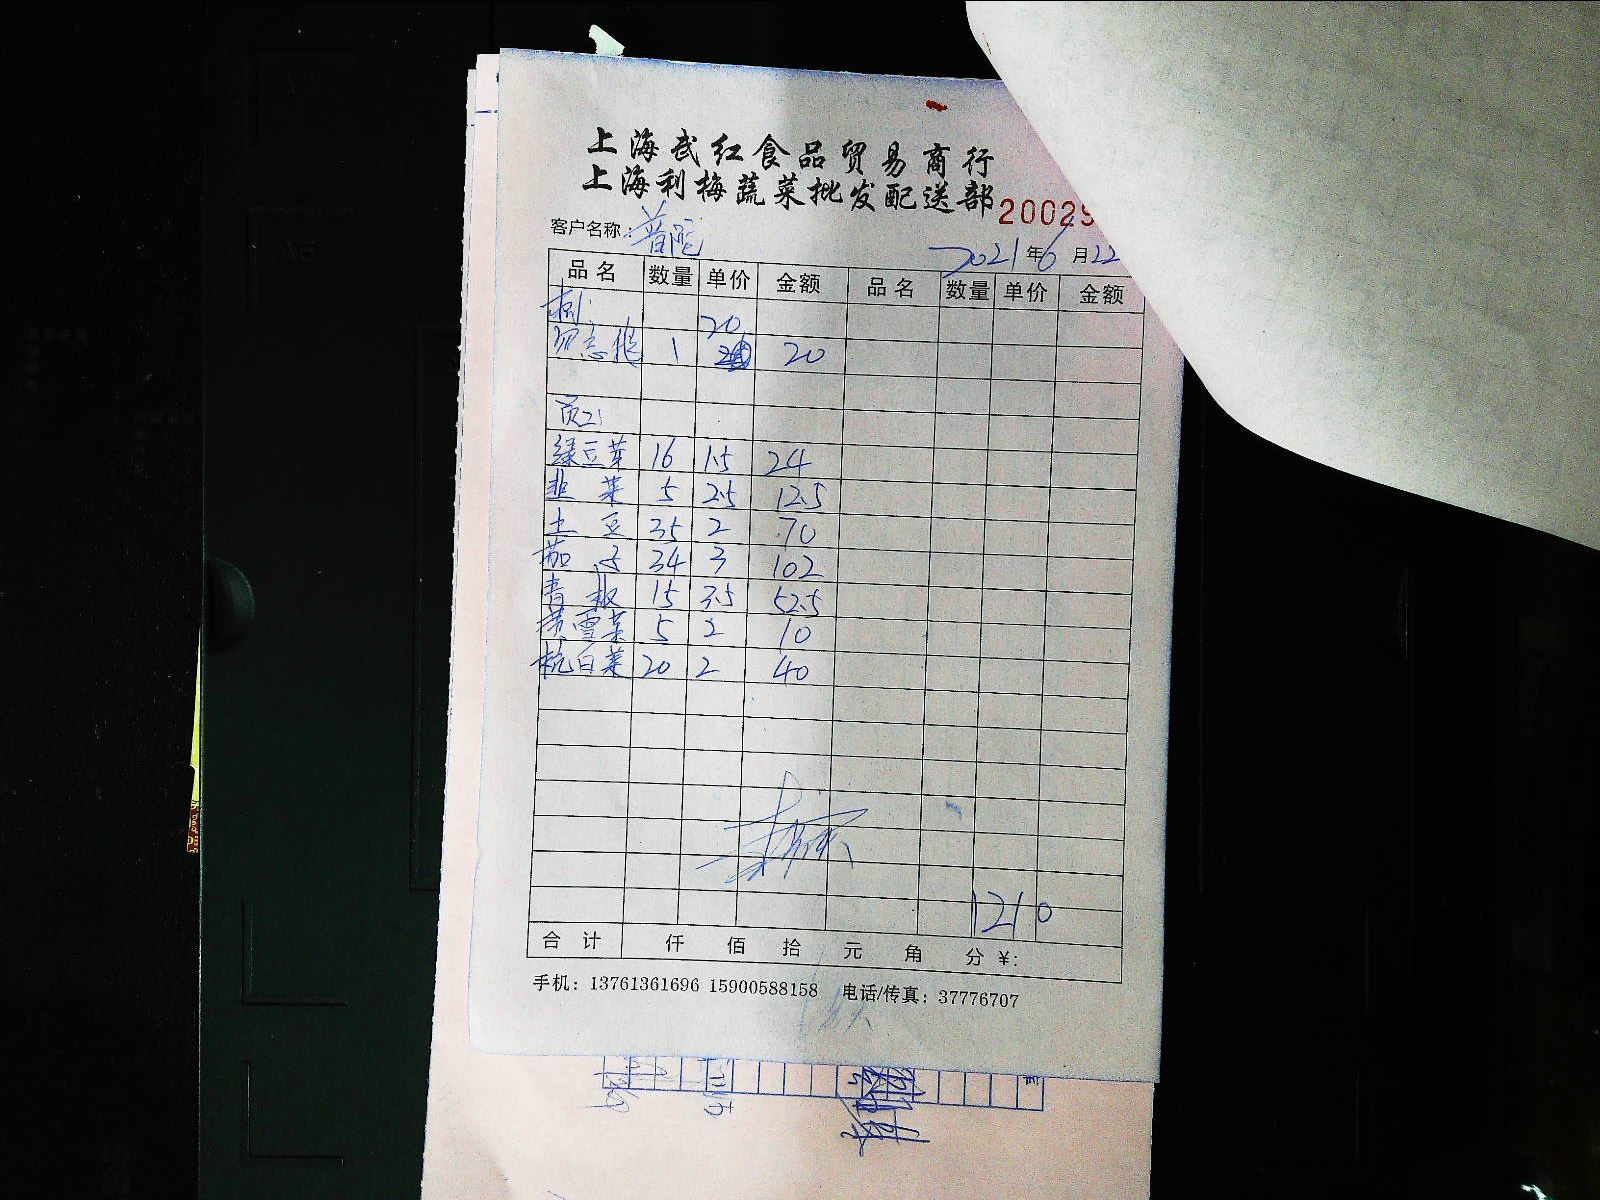 上海武红食品贸易商行
上海利梅蔬菜批发配送部 20029
客户名称：普陀
2021年6月22
品名 数量 单价 金额 品名 数量 单价 金额
20
1 20
员工:
绿豆芽 16 1.5 24
韭菜 5 2.5 12.5
土豆 35 2 70
茄子 34 3 102
青椒 15 3.5 52.5
5 2 10
杭白菜 20 2 40
1210
合计 仟 佰 拾 元 角 分 ¥:
手机: 13761361696 15900588158 电话/传真: 37776707